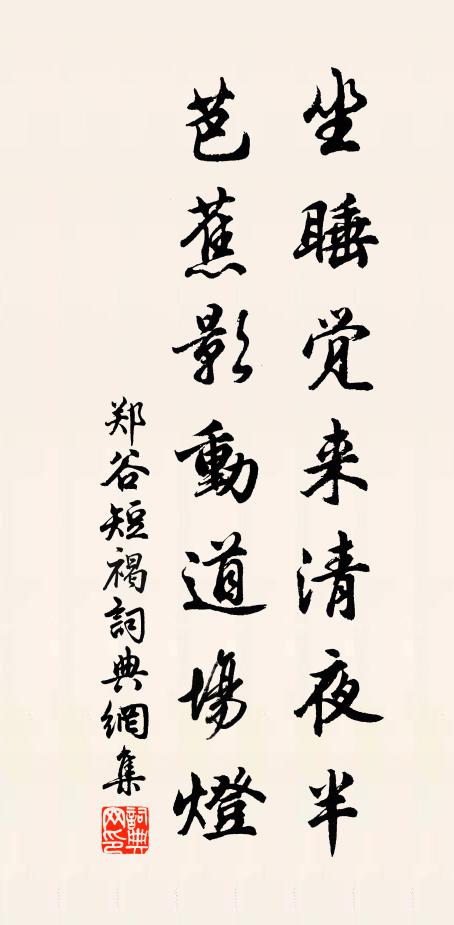 坐睡觉来清夜半
芭蕉影動道場燈
郑谷短褐詞典網集
詞典網印